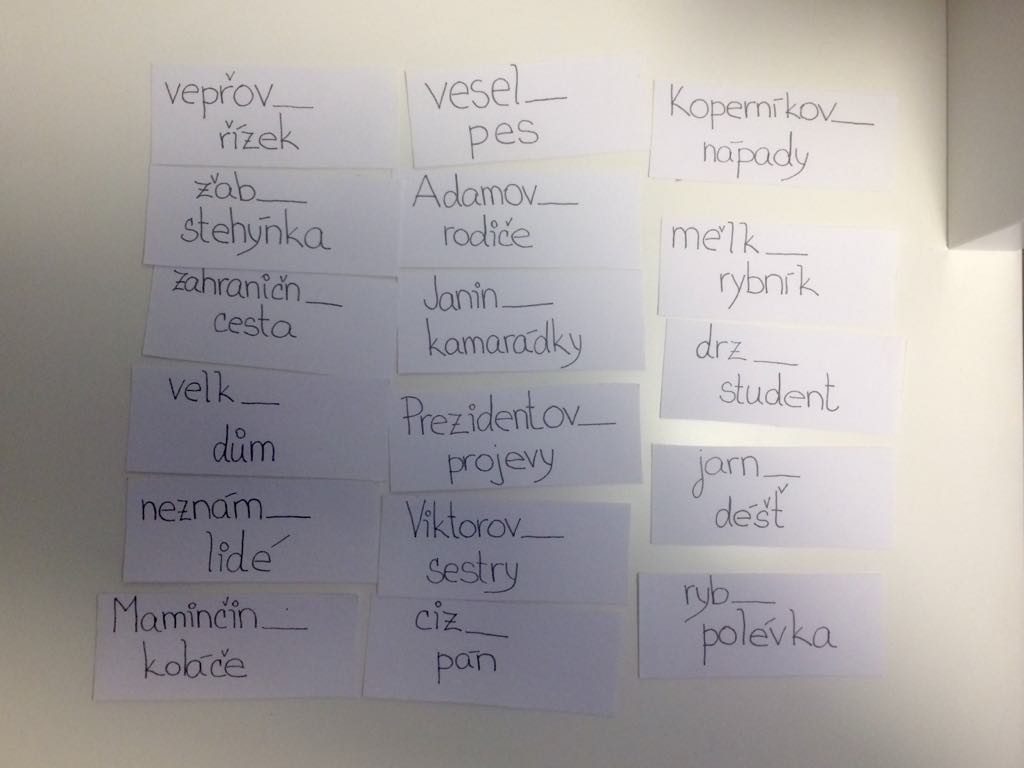 vepřov__
řízek
žab___
stehýnka
zahraničn__
cesta
velk__
dům
neznám__
lidé
Maminčin__
koláče
vesel__
pes
Adamov__
rodiče
Janin__
kamarádky
Prezidentov__
projevy
Viktorov__
sestry
ciz__
pán
Koperníkov__
nápady
mělk__
rybník
drz__
student
jarn__
déšť
ryb__
polévka